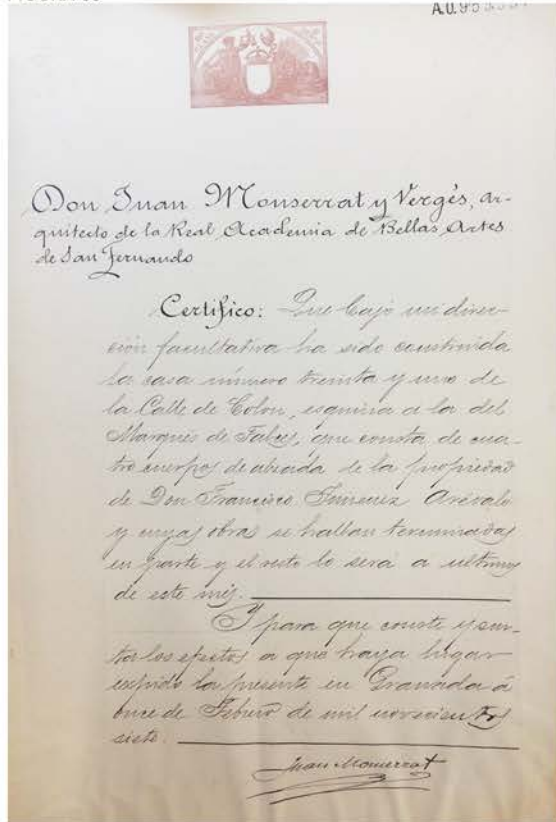 A.U.
Don Juan Monserrat y Vergés, ar-
quitecto de la Real Academia de Bellas Artes
de San Fernando
Certifico: Que bajo mi direc-
ción facultativa ha sido construida
la casa número treinta y uno de
la Calle de Colon, esquina a la del
Marqués de Falces, que consta de cua-
tro cuerpos de alzada de la propiedad
de Don Francisco Jimenez Arévalo
y cuyas obras se hallan terminadas
en parte y el resto lo será a ultimos
de este mes.
Y para que conste y sur-
ta los efectos a que haya lugar
expido la presente en Granada á
once de Febrero de mil novecientos
siete.
Juan Monserrat